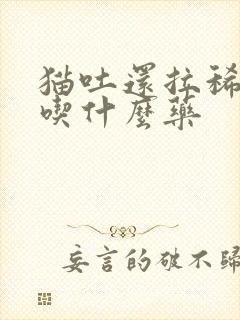 猫吐還拉稀
喫什麼藥
妄言的破不歸